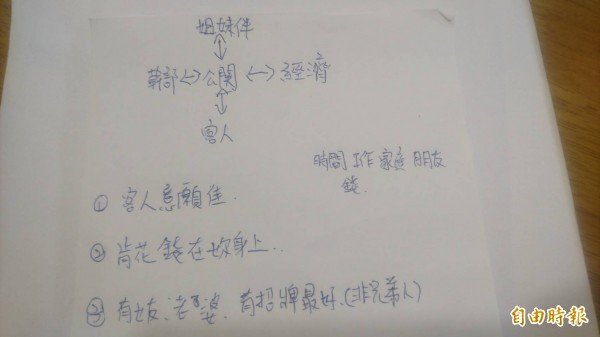 姐妹伴
幹部 <-> 公關 <-> 經濟
客人
時間 工作 家庭 朋友
錢.
① 客人意願佳.
② 肯花錢在妳身上.
③ 有女友.老婆.有招牌最好.(非兄弟人)
自由時報